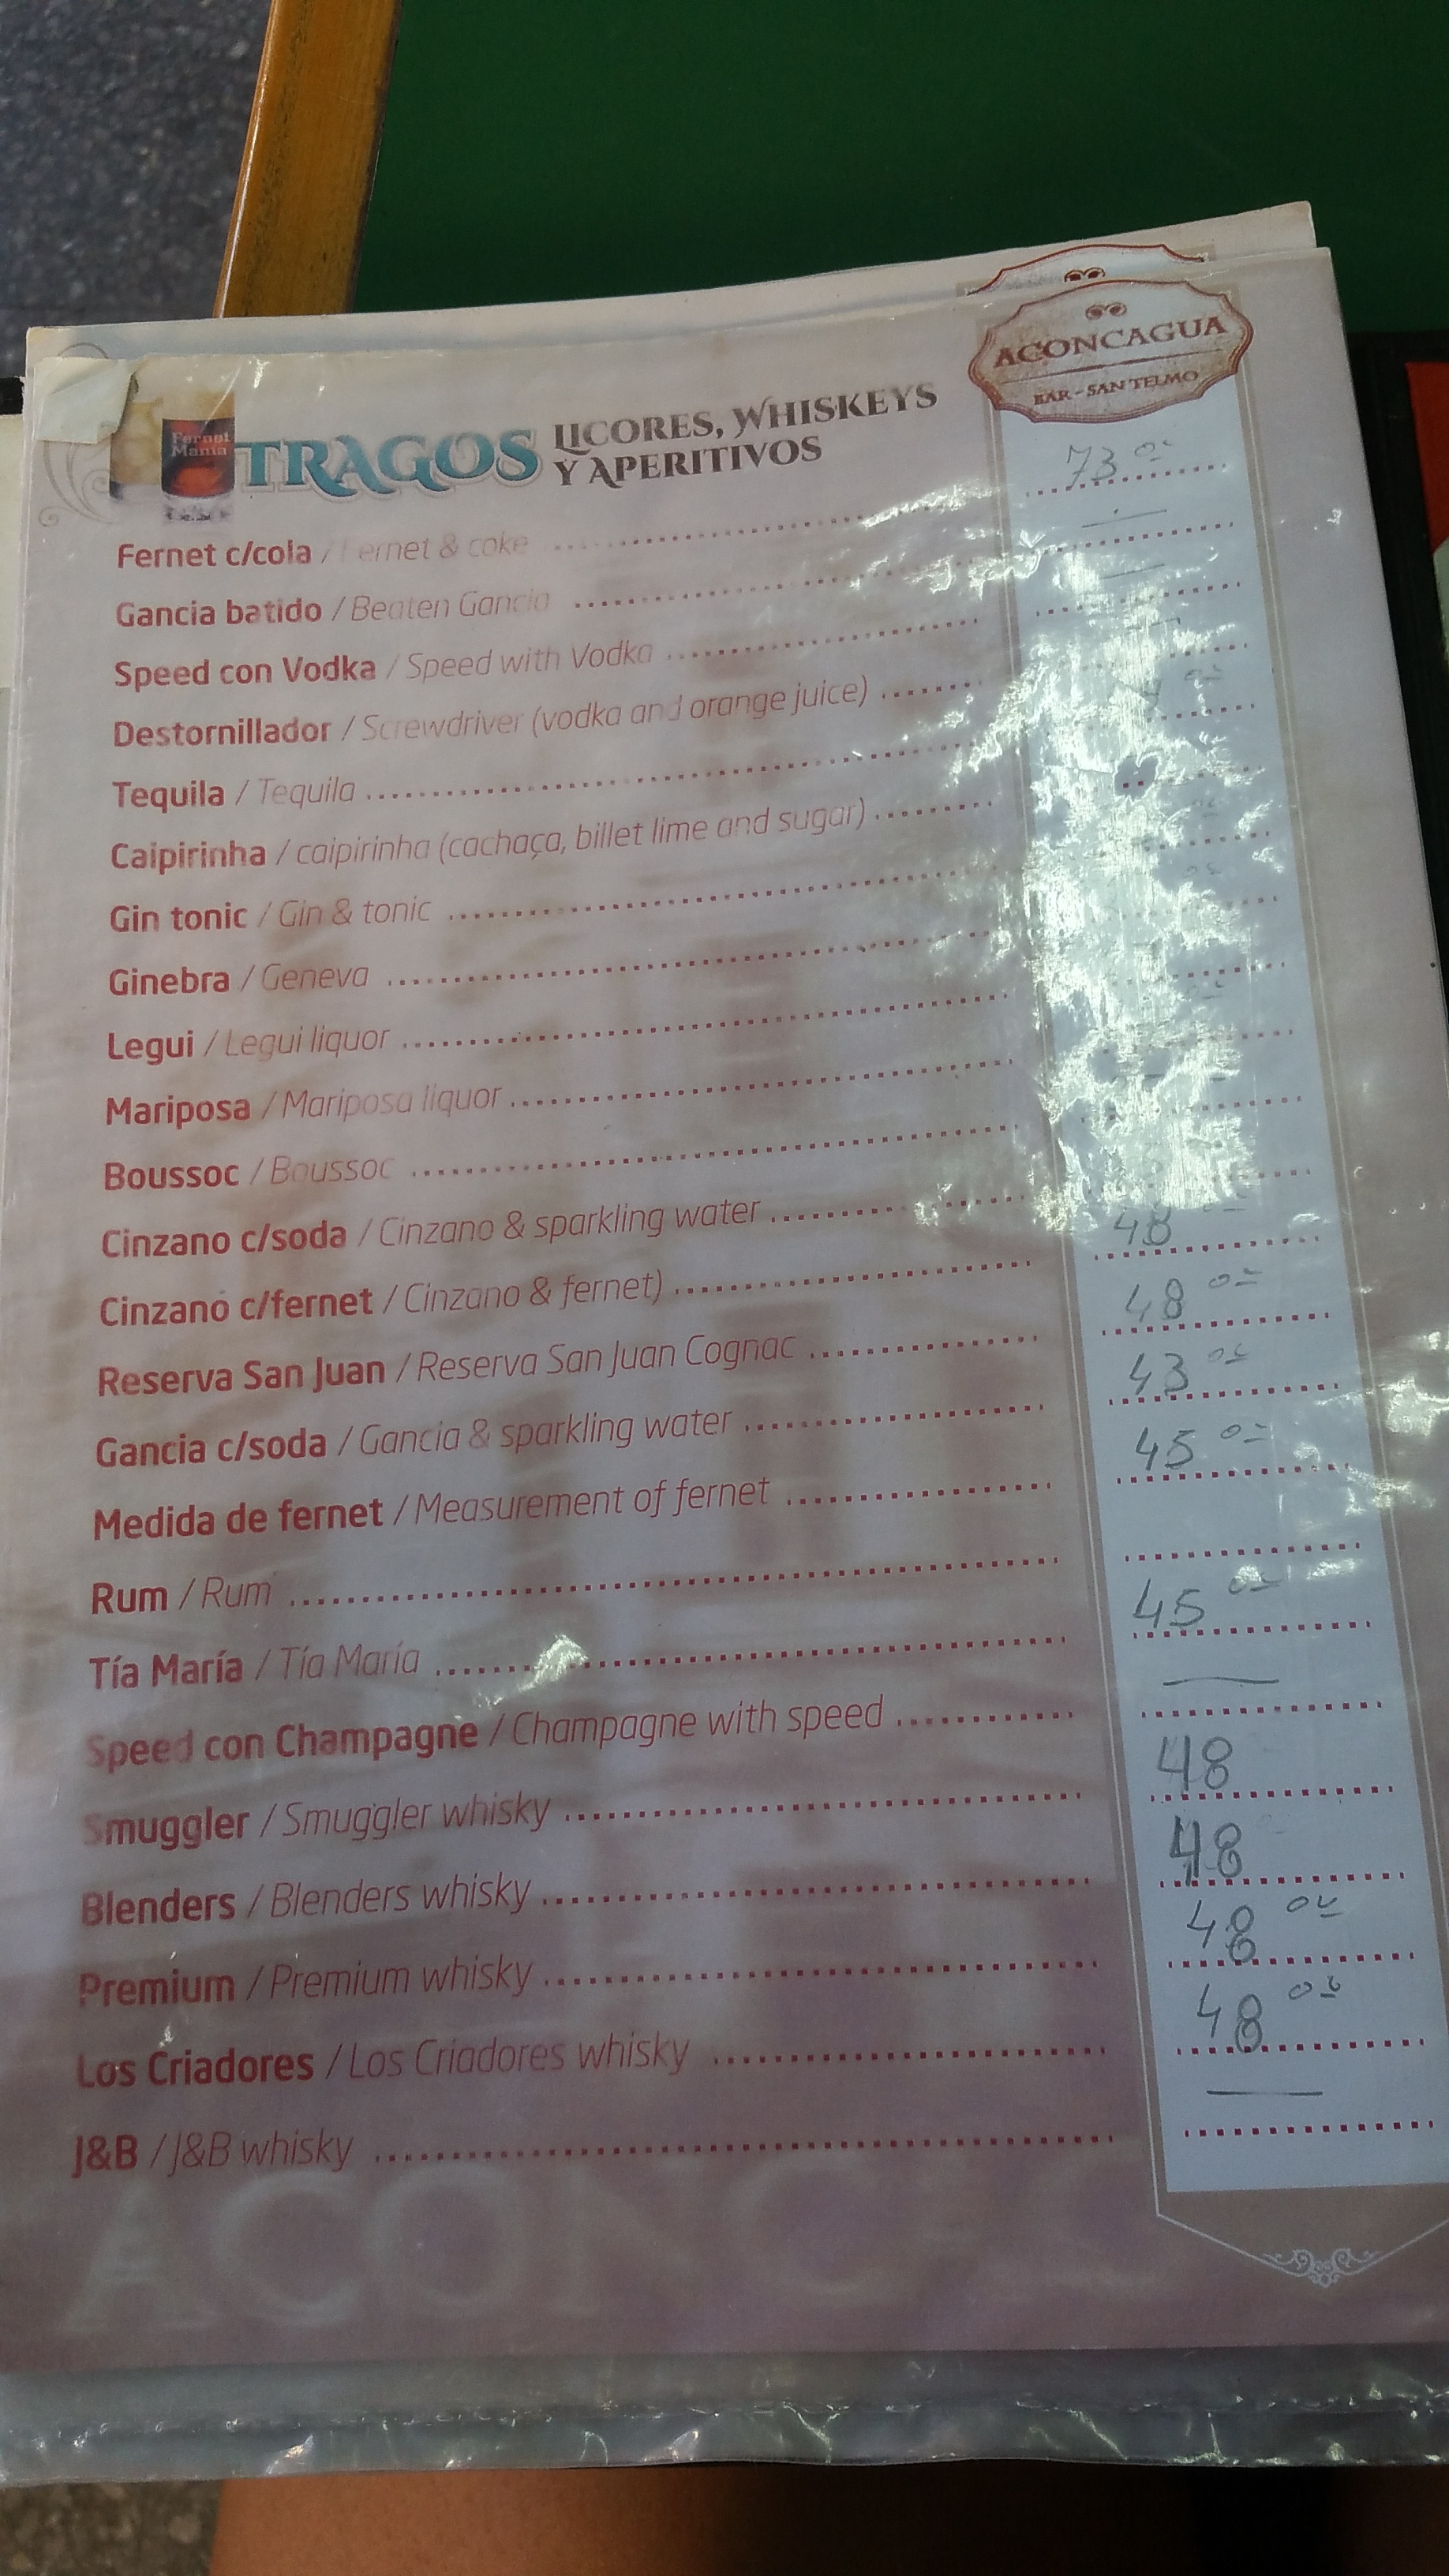 ACONCAGUA
BAR - SAN TELMO
Fernet Mania
TRAGOS LICORES, WHISKEYS
Y APERITIVOS
Fernet c/cola / Fernet & coke 73 00
Gancia batido / Beaten Gancia
Speed con Vodka / Speed with Vodka
Destornillador / Screwdriver (vodka and orange juice)
Tequila / Tequila
Caipirinha / caipirinha (cachaça, billet lime and sugar)
Gin tonic / Gin & tonic
Ginebra / Geneva
Legui / Legui liquor
Mariposa / Mariposa liquor
Boussoc / Boussoc
Cinzano c/soda / Cinzano & sparkling water
Cinzano c/fernet / Cinzano & fernet) 48
Reserva San Juan / Reserva San Juan Cognac 48 00
Gancia c/soda / Gancia & sparkling water 43 00
Medida de fernet / Measurement of fernet 45 00
Rum / Rum
Tía María / Tía María 45 00
Speed con Champagne / Champagne with speed —
Smuggler / Smuggler whisky 48
Blenders / Blenders whisky 48
Premium / Premium whisky 48 00
Los Criadores / Los Criadores whisky 48 00
J&B / J&B whisky —
ACONC